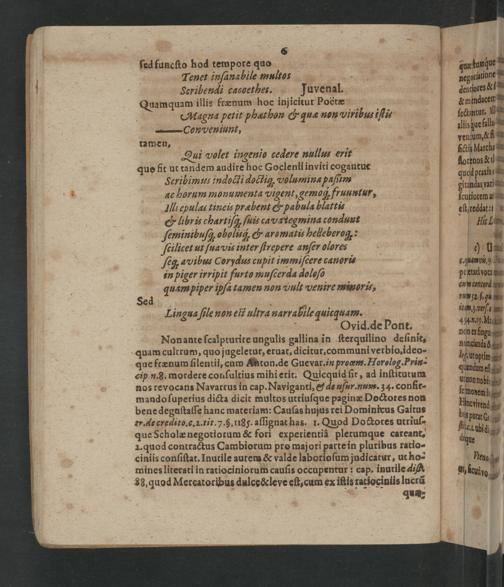 6
sed functo hod tempore quo
Tenet insanabile multos
Scribendi cacoethes. Juvenal.
Quamquam illis frænum hoc injicitur Poëtæ
Magna petit phaëthon & quæ non viribus istis
Conveniunt,
tamen,
Qui volet ingenio cedere nullus erit
quo fit ut tandem audire hoc Goclenii inviti cogantur
Scribimus indocti doctiq, volumina passim
ac horum monumenta vigent, gemoq, fruuntur,
Illi epulas tineis præbent & pabula blattis
& libris chartisq, suis cava tegmina condunt
seminibusq, oboliisq, & aromatis helleboroq,:
scilicet ut suavis inter strepere anser olores
seq, avibus Corydus cupit immiscere canoris
in piger irripit furto muscerda doloso
quam piper ipsa tamen non vult venire minoris,
Sed
Lingua sile non est ultra narrabile quicquam.
Ovid. de Pont.
Non ante scalpturire ungulis gallina in sterquilino desinit,
quam cultrum, quo jugeletur, eruat, dicitur, communi verbio, ideo-
que frænum silentii, cum Anton. de Guevar. in proœm. Horolog. Prin-
cip. n. 8. mordere consultius mihi erit. Quicquid sit, ad institutum
nos revocans Navarrus in cap. Naviganti, & de usur. num. 34. confir-
mando superius dicta dicit multos utriusque paginæ Doctores non
bene degustasse hanc materiam: Causas hujus rei Dominicus Gaitus
tr. de credito. c. 2. tit. 7. §. 1185. assignat has. 1. Quod Doctores utrius-
que Scholæ negotiorum & fori experientiâ plerumque careant,
2. quod contractus Cambiorum pro majori parte in pluribus ratio-
ciniis consistat. Inutile autem & valde laboriosum judicatur, ut ho-
mines literati in ratiociniorum causis occupentur: cap. inutile dist.
88. quod Mercatoribus dulce & leve est, cum ex istis ratiociniis lucrū
quæ-